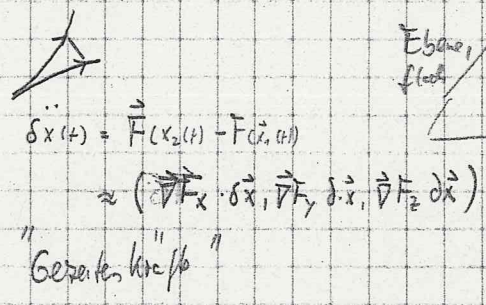 Ebene,
flach
δẍ(t) = F⃗(x₂(t)) - F(x⃗₁(t))
≈ (∇⃗F⃗ₓ · δx⃗, ∇⃗F_y δ·x⃗, ∇⃗F_z ∂x⃗)
"Gezeitenkräfte"